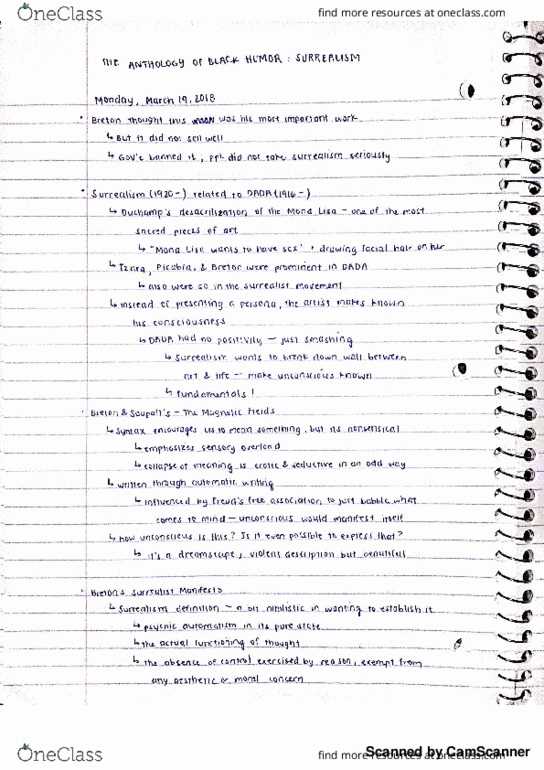 OneClass
find more resources at oneclass.com
THE ANTHOLOGY OF BLACK HUMOR : SURREALISM
Monday, March 19, 2018
• Breton thought this was his most important work
↳ But it did not sell well
↳ Gov't banned it, ppl did not take surrealism seriously
• Surrealism (1920-) related to DADA (1916-)
↳ Duchamp's desacrilization of the Mona Lisa - one of the most
sacred pieces of art
↳ "Mona Lisa wants to have sex" + drawing facial hair on her
↳ Tzara, Picabia, & Breton were prominent in DADA
↳ also were so in the surrealist movement
↳ instead of presenting a persona, the artist makes known
his consciousness
↳ DADA had no positivity - just smashing
↳ surrealism wants to break down wall between
art & life - make unconscious known
↳ fundamentals!
• Breton & Soupalt's - The Magnetic Fields
↳ Syntax encourages us to mean something, but its nonsensical
↳ emphasizes sensory overload
↳ collapse of meaning is erotic & seductive in an odd way
↳ written through automatic writing
↳ influenced by Freud's free association, to just babble what
comes to mind - unconscious would manifest itself
↳ how unconscious is this? Is it even possible to express that?
↳ it's a dreamscape, violent description but beautiful
• Breton's Surrealist Manifesto
↳ Surrealism definition - a bit nihilistic in wanting to establish it
↳ psychic automatism in its pure state
↳ the actual functioning of thought
↳ the absence of control exercised by reason, exempt from
any aesthetic or moral concern
Scanned by CamScanner
OneClass
find more resources at oneclass.com